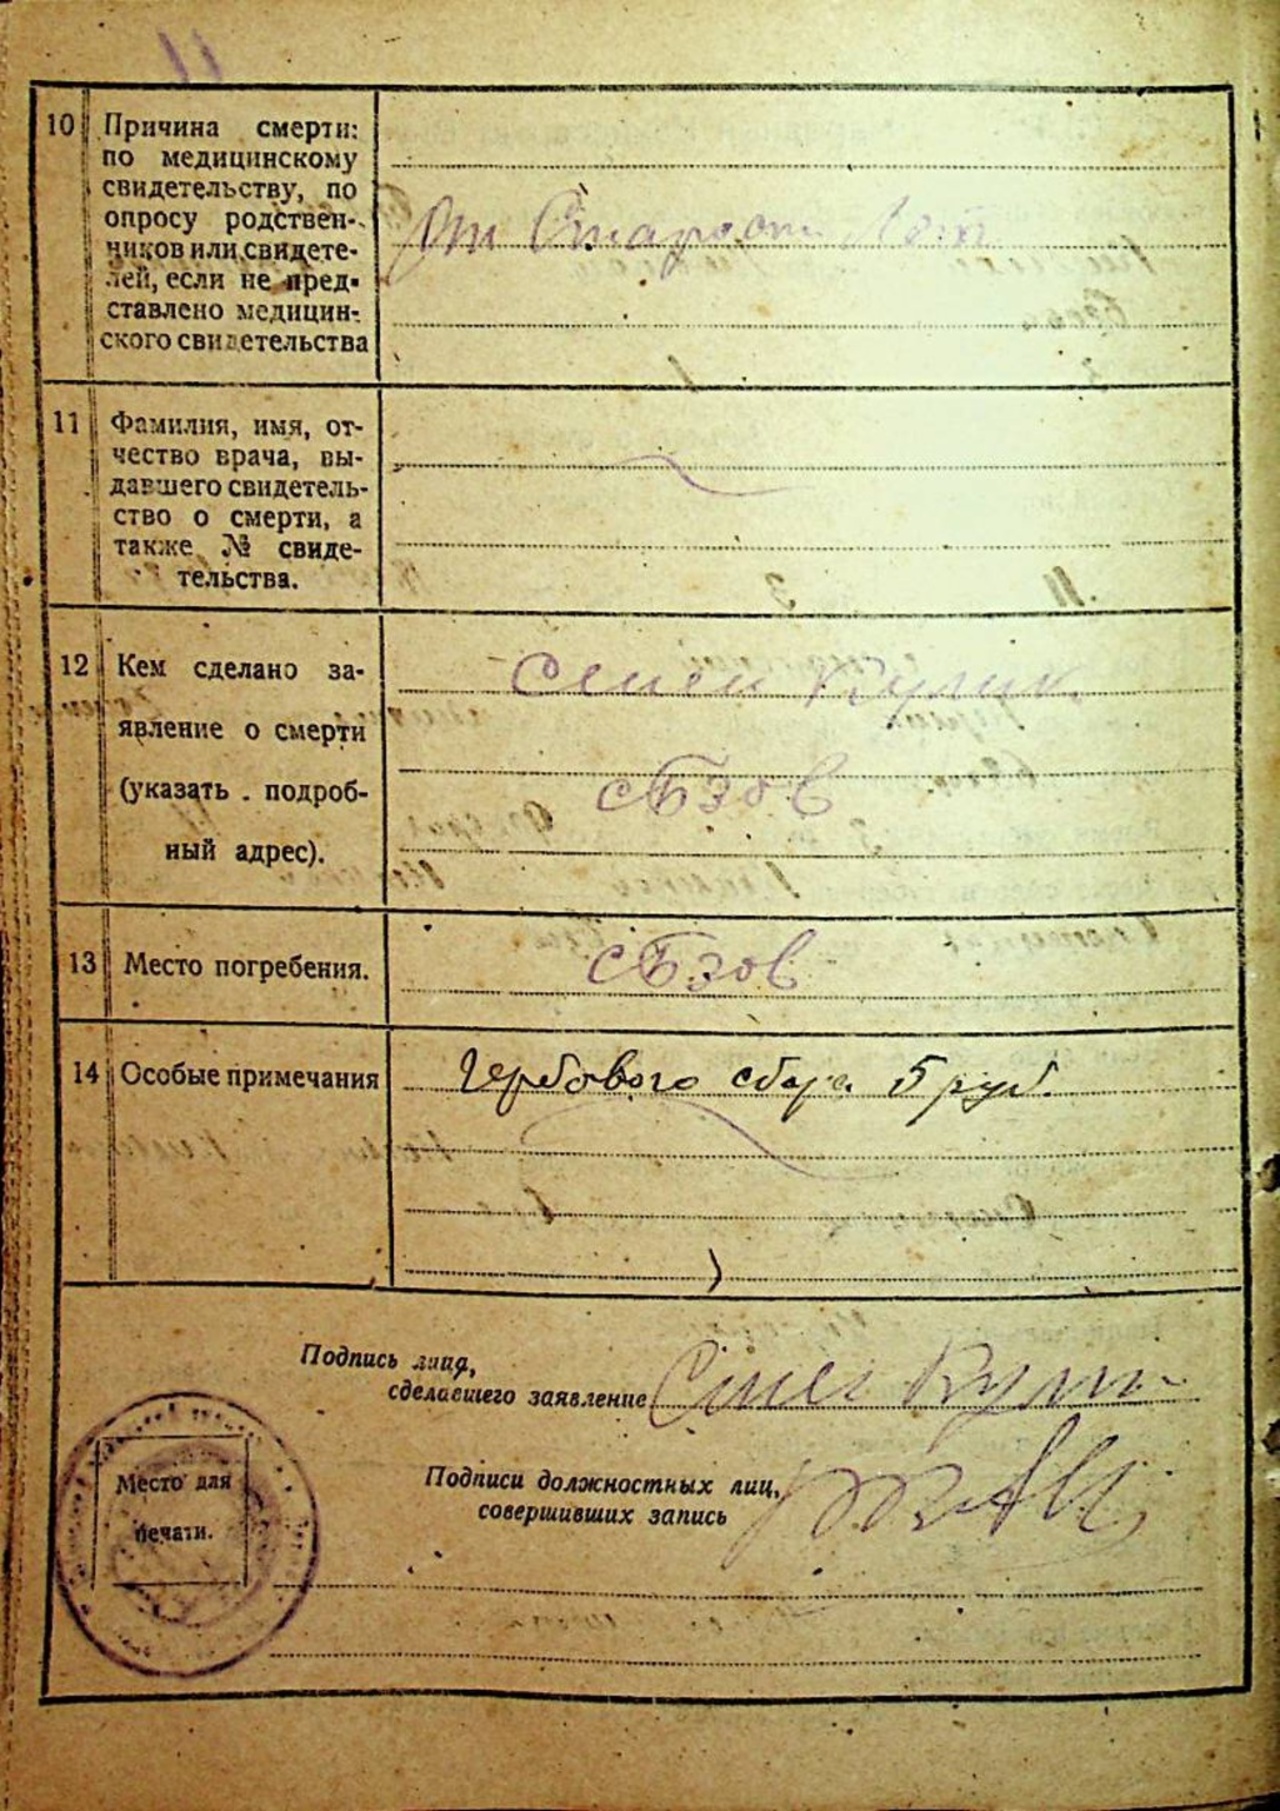 10 Причина смерти:
по медицинскому
свидетельству, по
опросу родствен-
ников или свидете-
лей, если не пред-
ставлено медицин-
ского свидетельства
От Старости Лет
11 Фамилия, имя, от-
чество врача, вы-
давшего свидетель-
ство о смерти, а
также № свиде-
тельства.
12 Кем сделано за-
явление о смерти
(указать подроб-
ный адрес).
Семен Кулик
с Бзов
13 Место погребения.
с Бзов
14 Особые примечания
Гербового сбора 5 руб.
Подпись лица,
сделавшего заявление
Подписи должностных лиц,
совершивших запись
Место для
печати.